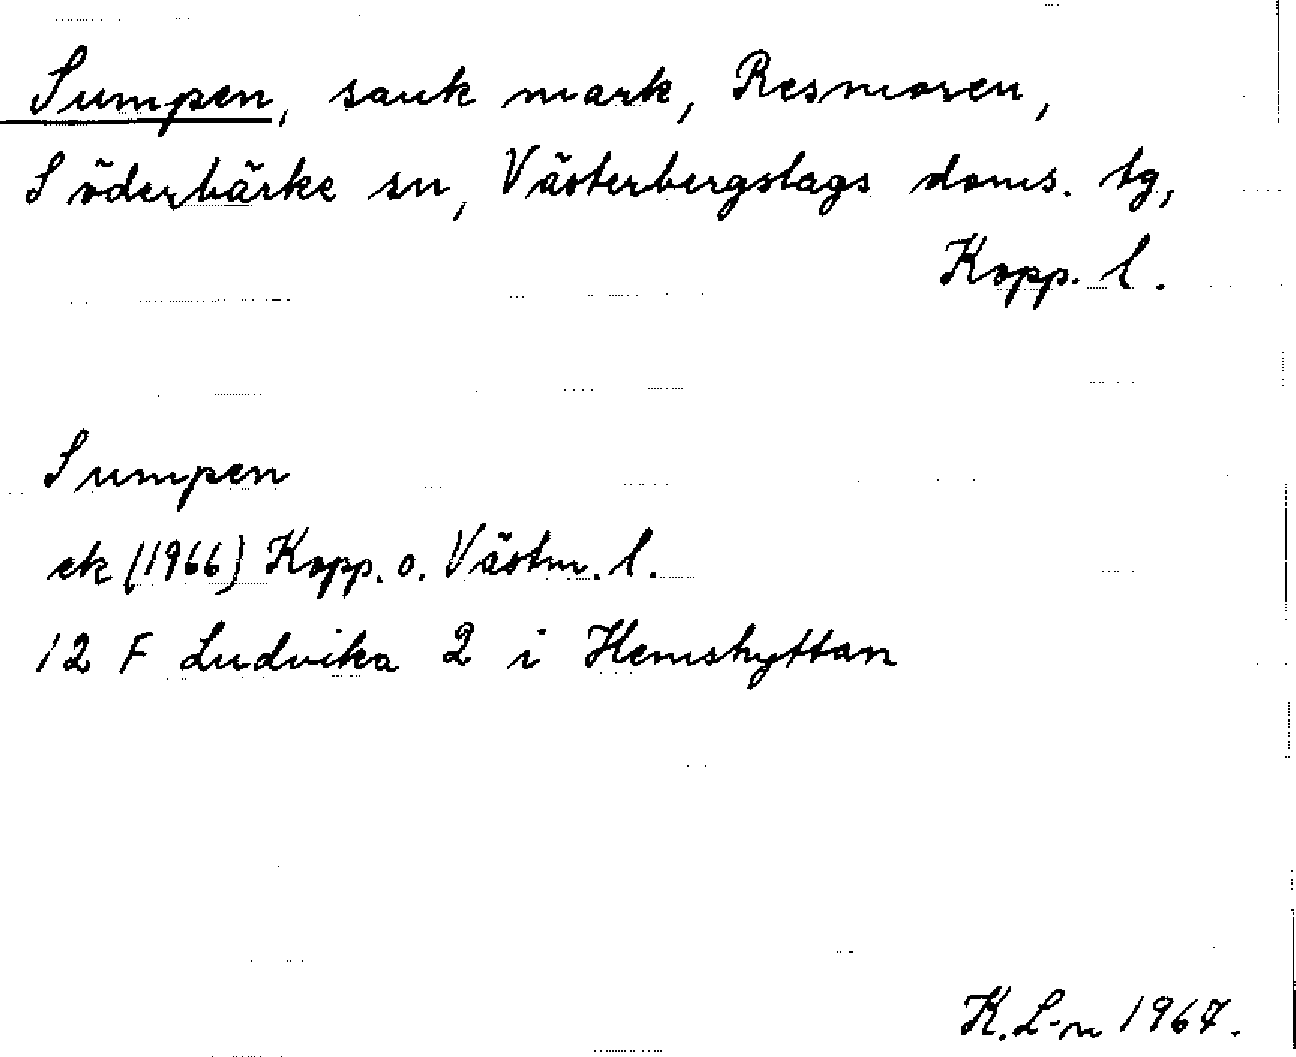 Sumpen, sank mark, Resmoren,
Söderbärke sn, Västerbergslags doms. tg,
Kopp. l.
Sumpen
ek (1966) Kopp. o. Västm. l.
12 F Ludvika 2 i Hemshyttan
K. L-n 1967.